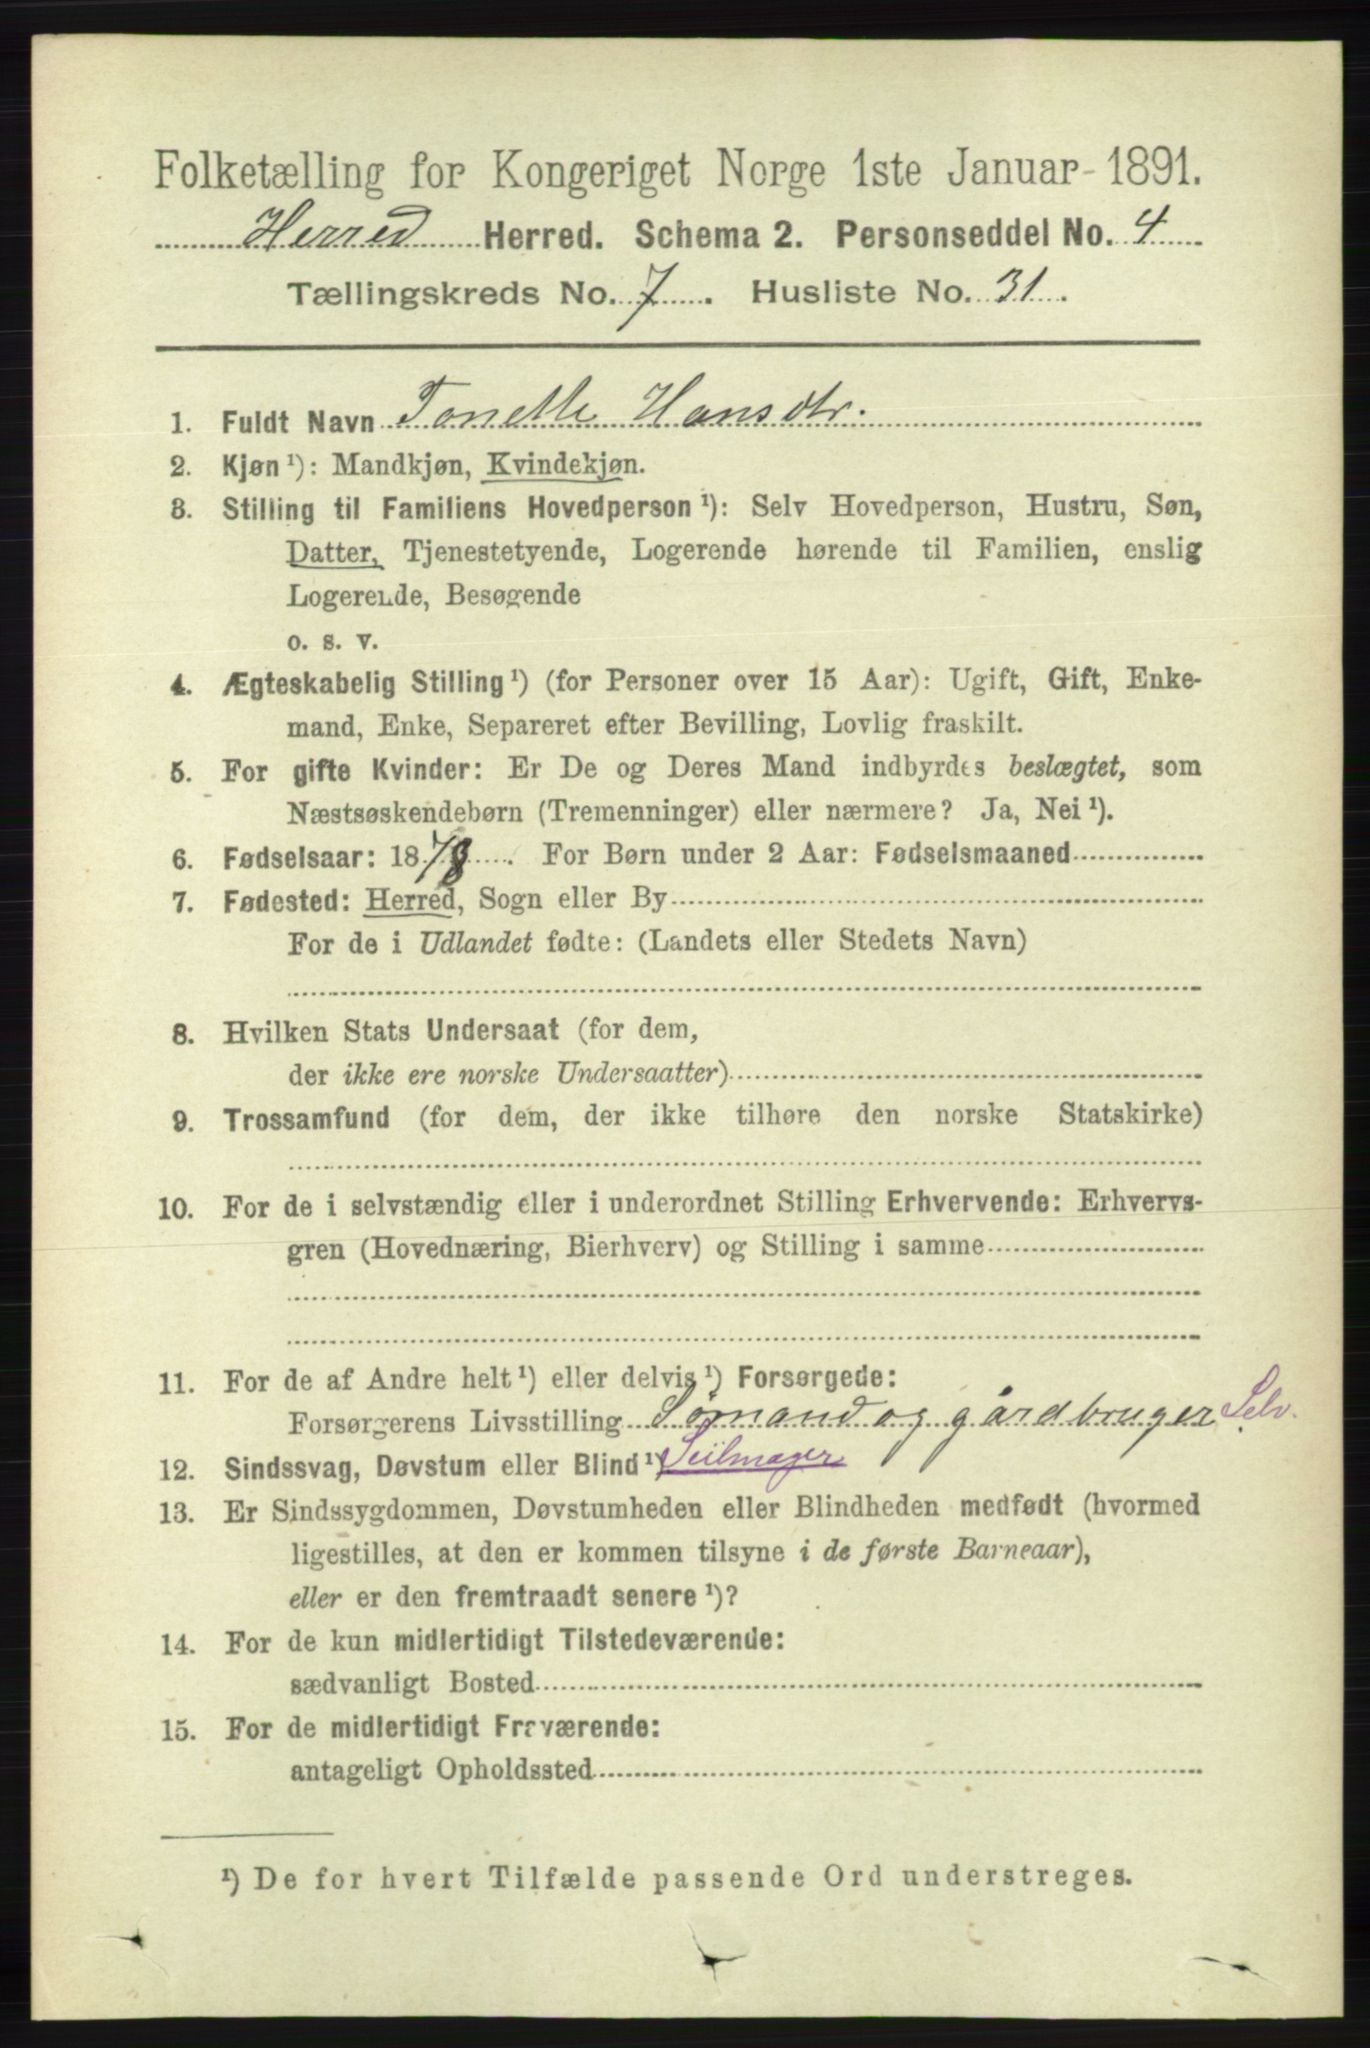 Folketælling for Kongeriget Norge 1ste Januar 1891.
Herred Herred. Schema 2. Personseddel No. 4
Tællingskreds No. 7. Husliste No. 31.
1. Fuldt Navn Tonette Hansdtr.
2. Kjøn ¹): Mandkjøn, Kvindekjøn.
3. Stilling til Familiens Hovedperson ¹): Selv Hovedperson, Hustru, Søn,
Datter, Tjenestetyende, Logerende hørende til Familien, enslig
Logerende, Besøgende
o. s. v.
4. Ægteskabelig Stilling ¹) (for Personer over 15 Aar): Ugift, Gift, Enke-
mand, Enke, Separeret efter Bevilling, Lovlig fraskilt.
5. For gifte Kvinder: Er De og Deres Mand indbyrdes beslægtet, som
Næstsøskendebørn (Tremenninger) eller nærmere? Ja, Nei ¹).
6. Fødselsaar: 1878. For Børn under 2 Aar: Fødselsmaaned
7. Fødested: Herred, Sogn eller By
For de i Udlandet fødte: (Landets eller Stedets Navn)
8. Hvilken Stats Undersaat (for dem,
der ikke ere norske Undersaatter)
9. Trossamfund (for dem, der ikke tilhøre den norske Statskirke)
10. For de i selvstændig eller i underordnet Stilling Erhvervende: Erhvervs-
gren (Hovednæring, Bierhverv) og Stilling i samme
11. For de af Andre helt ¹) eller delvis ¹) Forsørgede:
Forsørgerens Livsstilling Sømand og gårdbruger Selv.
12. Sindssvag, Døvstum eller Blind ¹) Seilmager
13. Er Sindssygdommen, Døvstumheden eller Blindheden medfødt (hvormed
ligestilles, at den er kommen tilsyne i de første Barneaar),
eller er den fremtraadt senere ¹)?
14. For de kun midlertidigt Tilstedeværende:
sædvanligt Bosted
15. For de midlertidigt Fraværende:
antageligt Opholdssted
¹) De for hvert Tilfælde passende Ord understreges.